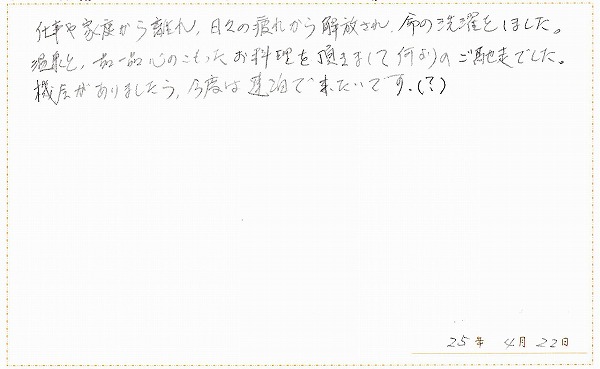 仕事や家庭から離れ、日々の疲れから解放され、命の洗濯をしました。
温泉と、一品一品心のこもったお料理を頂きまして何よりのご馳走でした。
機会がありましたら、今度は連泊で来たいです.(?)
25年 4月 22日